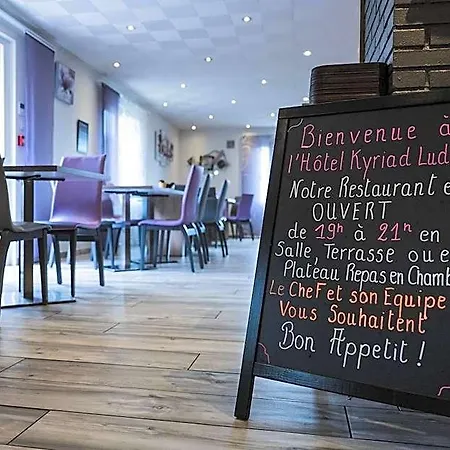 Bienvenue à
l'Hôtel Kyriad Lud
Notre Restaurant e
OUVERT
de 19h à 21h en
Salle, Terrasse ou e
Plateau Repas en Chamb
Le CheF et son Equipe
Vous Souhaitent
Bon Appetit !